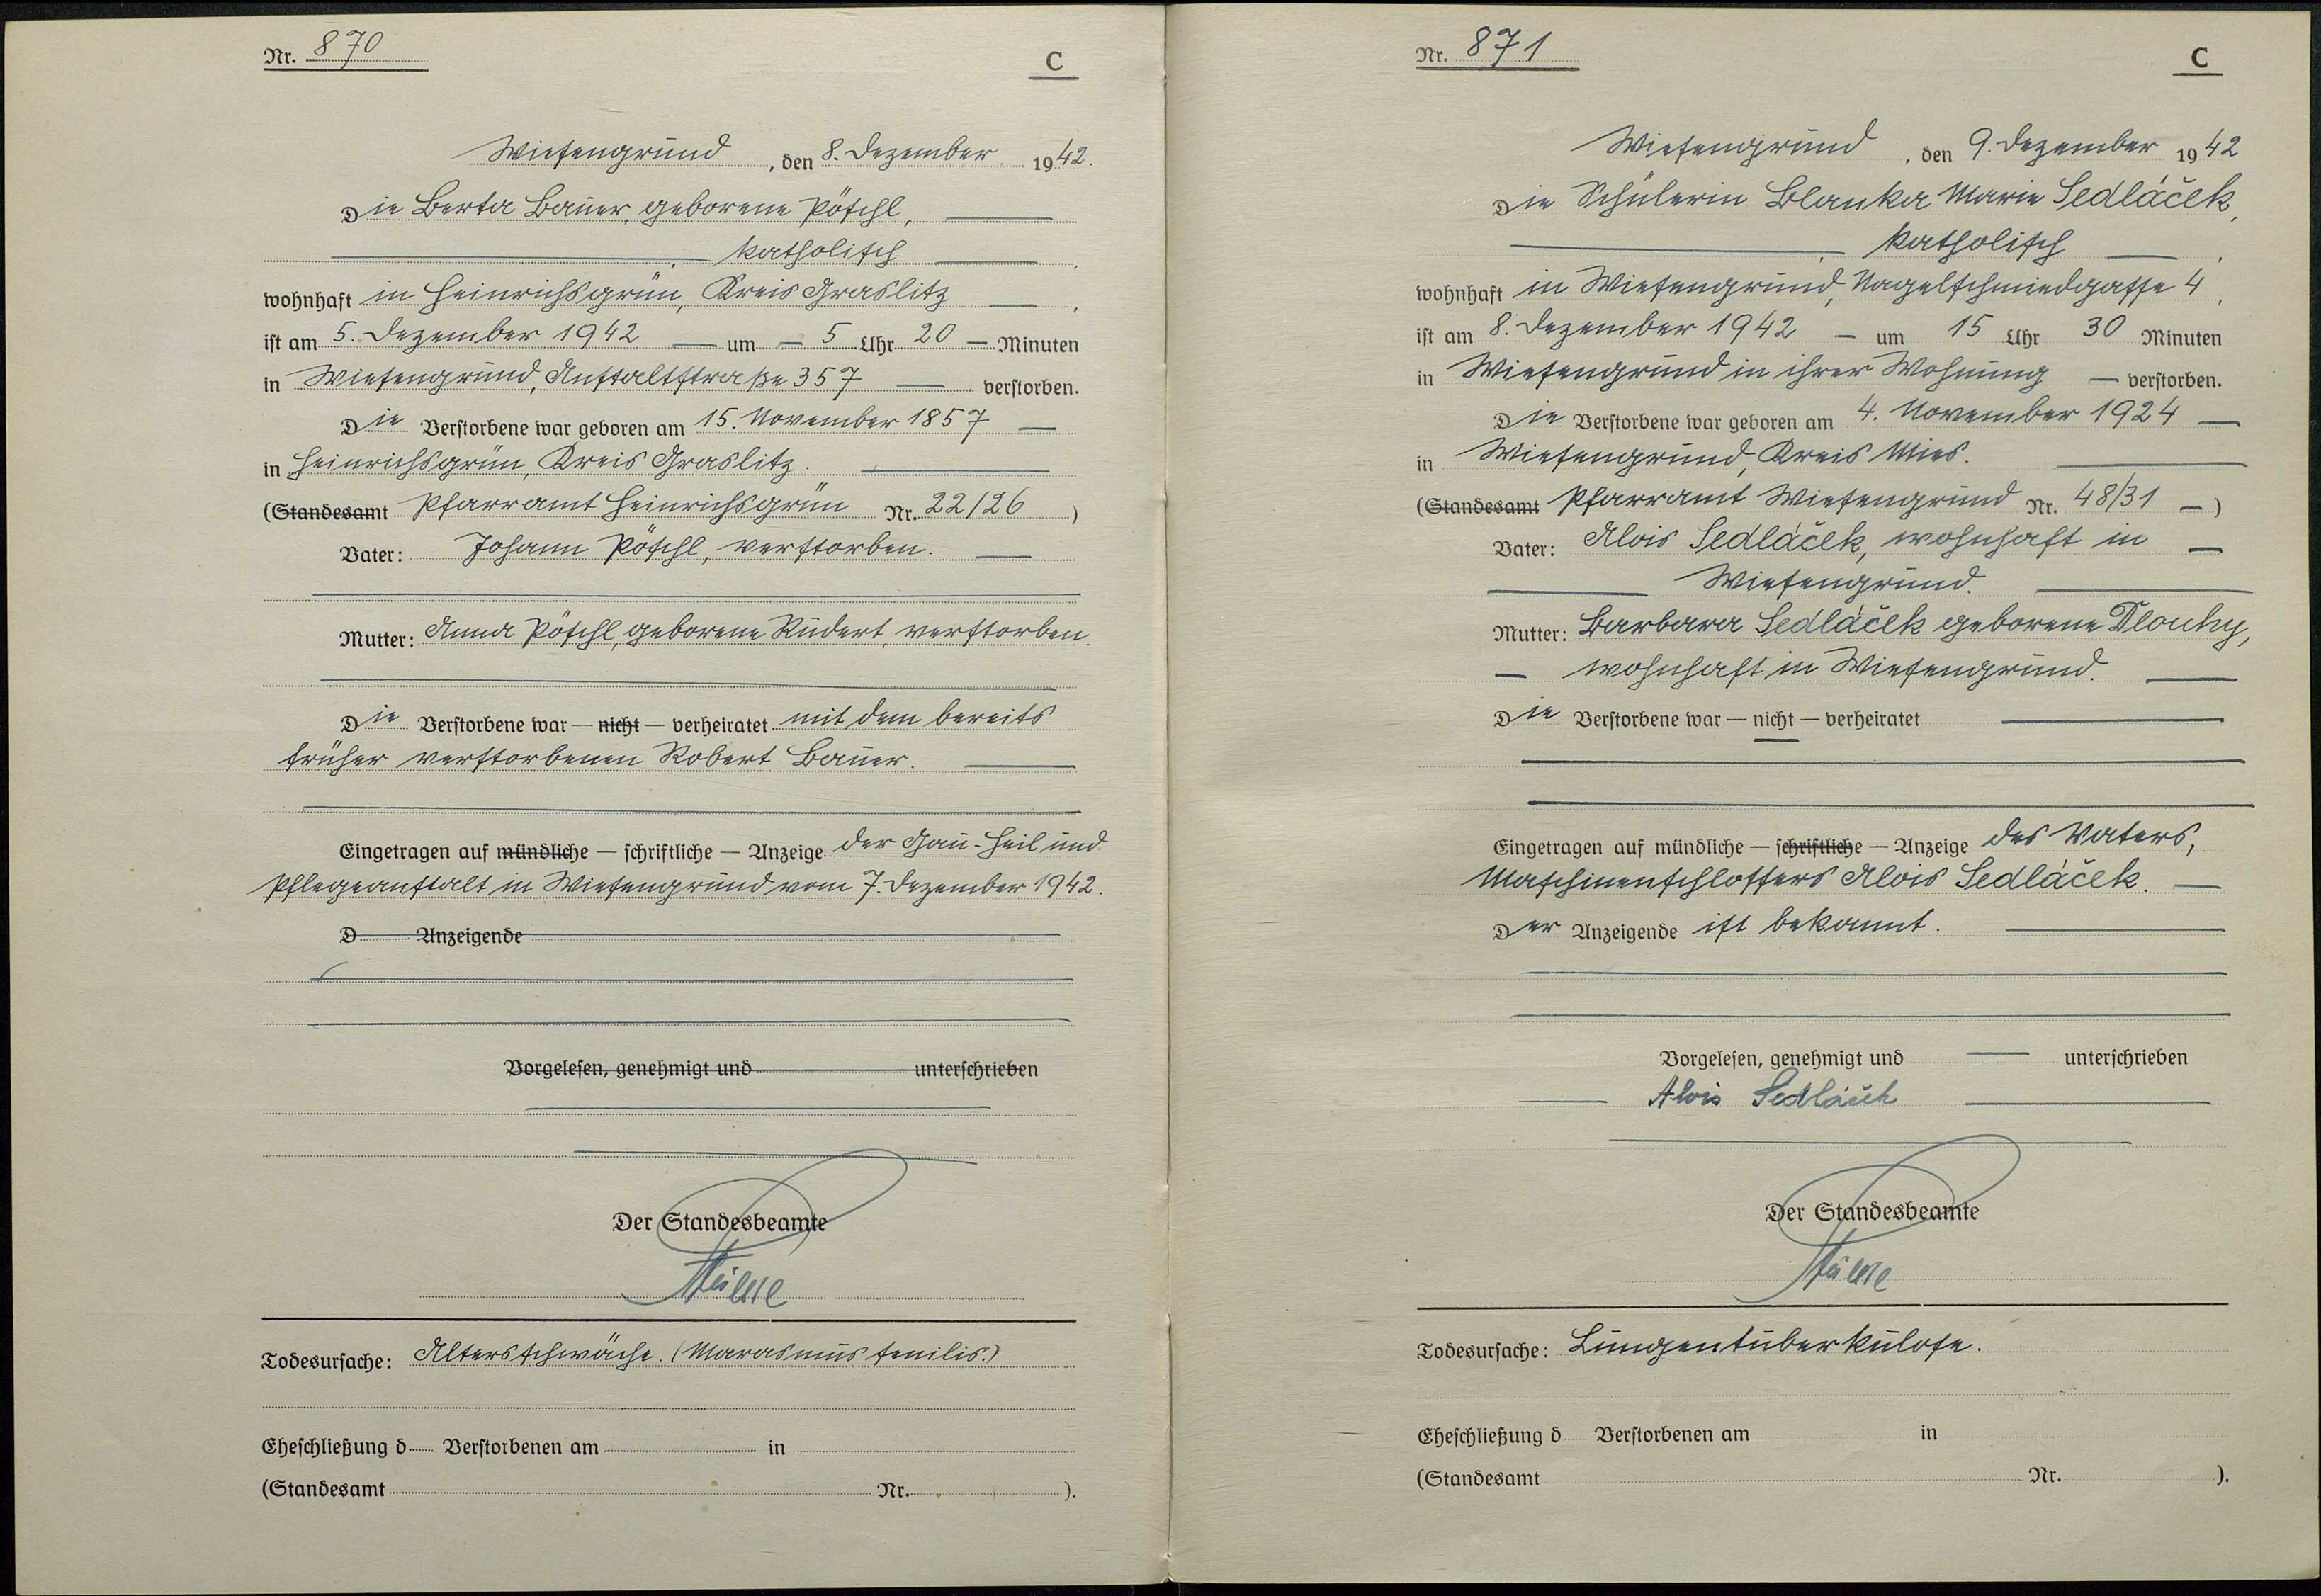 Nr. 870
C
Wiesengrund, den 8. Dezember 1942.
Die Berta Bauer, geborene Pöschl,
katholisch
wohnhaft in Heinrichsgrün, Kreis Graslitz
ist am 5. Dezember 1942 um 5 Uhr 20 Minuten
in Wiesengrund, Anstaltstraße 357 verstorben.
Die Verstorbene war geboren am 15. November 1857
in Heinrichsgrün, Kreis Graslitz.
(Standesamt Pfarramt Heinrichsgrün Nr. 22/26)
Vater: Johann Pöschl, verstorben.
Mutter: Anna Pöschl, geborene Rudert, verstorben.
Die Verstorbene war — nicht — verheiratet mit dem bereits
früher verstorbenen Robert Bauer.
Eingetragen auf mündliche — schriftliche — Anzeige der Gau-Heil und
Pflegeanstalt in Wiesengrund vom 7. Dezember 1942.
D Anzeigende
Vorgelesen, genehmigt und unterschrieben
Der Standesbeamte
Todesursache: Altersschwäche. (Marasmus senilis.)
Eheschließung d Verstorbenen am in
(Standesamt Nr. ).
Nr. 871
C
Wiesengrund, den 9. Dezember 1942
Die Schülerin Blanka Marie Sedláček,
katholisch
wohnhaft in Wiesengrund, Nagelschmiedgasse 4,
ist am 8. Dezember 1942 — um 15 Uhr 30 Minuten
in Wiesengrund in ihrer Wohnung — verstorben.
Die Verstorbene war geboren am 4. November 1924
in Wiesengrund, Kreis Mies.
(Standesamt Pfarramt Wiesengrund Nr. 48/31 —)
Vater: Alois Sedláček, wohnhaft in
Wiesengrund.
Mutter: Barbara Sedláček geborene Dlouhy,
— wohnhaft in Wiesengrund.
Die Verstorbene war — nicht — verheiratet
Eingetragen auf mündliche — schriftliche — Anzeige des Vaters,
Maschinenschlossers Alois Sedláček.
Der Anzeigende ist bekannt.
Vorgelesen, genehmigt und — unterschrieben
Alois Sedláček
Der Standesbeamte
Todesursache: Lungentuberkulose.
Eheschließung d Verstorbenen am in
(Standesamt Nr. ).